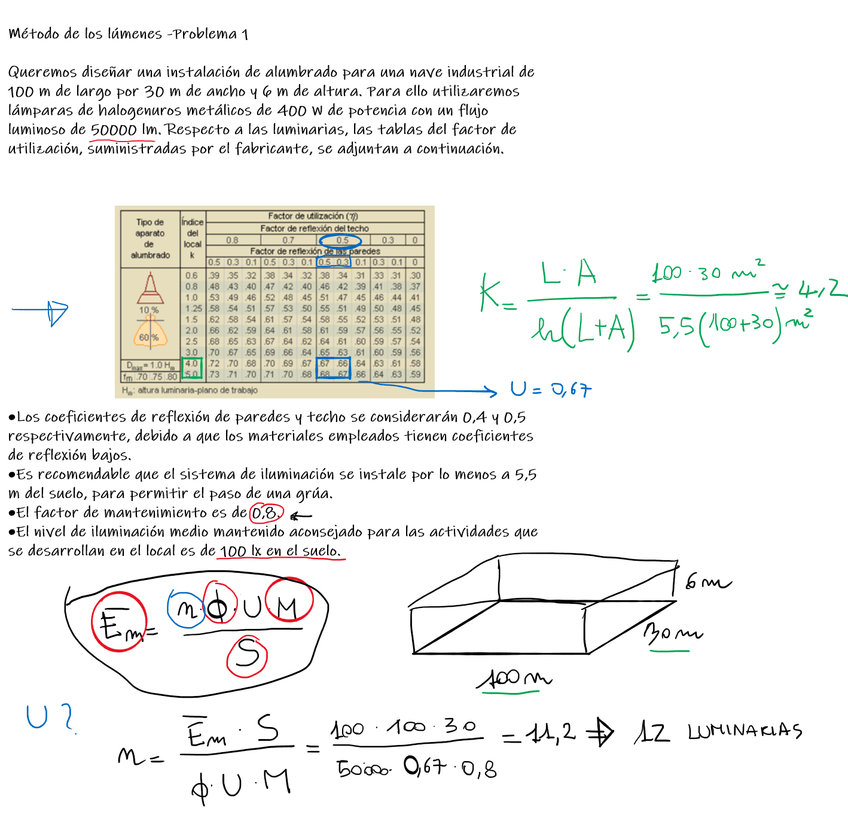 Método de los lúmenes -Problema 1
Queremos diseñar una instalación de alumbrado para una nave industrial de
100 m de largo por 30 m de ancho y 6 m de altura. Para ello utilizaremos
lámparas de halogenuros metálicos de 400 W de potencia con un flujo
luminoso de 50000 lm. Respecto a las luminarias, las tablas del factor de
utilización, suministradas por el fabricante, se adjuntan a continuación.
Tipo de aparato de alumbrado
Índice del local k
Factor de utilización (η)
Factor de reflexión del techo
0.8 0.7 0.5 0.3 0
Factor de reflexión de las paredes
0.5 0.3 0.1 0.5 0.3 0.1 0.5 0.3 0.1 0.3 0.1 0
0.6 .39 .35 .32 .38 .34 .32 .38 .34 .31 .33 .31 .30
0.8 .48 .43 .40 .47 .42 .40 .46 .42 .39 .41 .38 .37
1.0 .53 .49 .46 .52 .48 .45 .51 .47 .45 .46 .44 .41
1.25 .58 .54 .51 .57 .53 .50 .55 .51 .49 .50 .48 .45
1.5 .62 .58 .54 .61 .57 .54 .58 .55 .52 .53 .51 .48
2.0 .66 .62 .59 .64 .61 .58 .61 .59 .57 .56 .55 .52
2.5 .68 .65 .63 .67 .64 .62 .64 .61 .60 .59 .57 .54
3.0 .70 .67 .65 .69 .66 .64 .65 .63 .61 .60 .59 .56
4.0 .72 .70 .68 .70 .69 .67 .67 .66 .64 .63 .61 .58
5.0 .73 .71 .70 .71 .70 .68 .68 .67 .66 .64 .63 .59
10 %
60%
Dmax = 1.0 Hm
fm .70 .75 .80
Hm: altura luminaria-plano de trabajo
K = L · A / h(L+A) = 100 · 30 m² / 5,5(100+30)m² ≅ 4,2
U = 0,67
•Los coeficientes de reflexión de paredes y techo se considerarán 0,4 y 0,5
respectivamente, debido a que los materiales empleados tienen coeficientes
de reflexión bajos.
•Es recomendable que el sistema de iluminación se instale por lo menos a 5,5
m del suelo, para permitir el paso de una grúa.
•El factor de mantenimiento es de 0,8.
•El nivel de iluminación medio mantenido aconsejado para las actividades que
se desarrollan en el local es de 100 lx en el suelo.
E̅m = n · ϕ · U M / S
6 m
30 m
100 m
U ?
n = E̅m · S / ϕ · U · M = 100 · 100 · 30 / 50000 · 0,67 · 0,8 = 11,2 ⇒ 12 LUMINARIAS